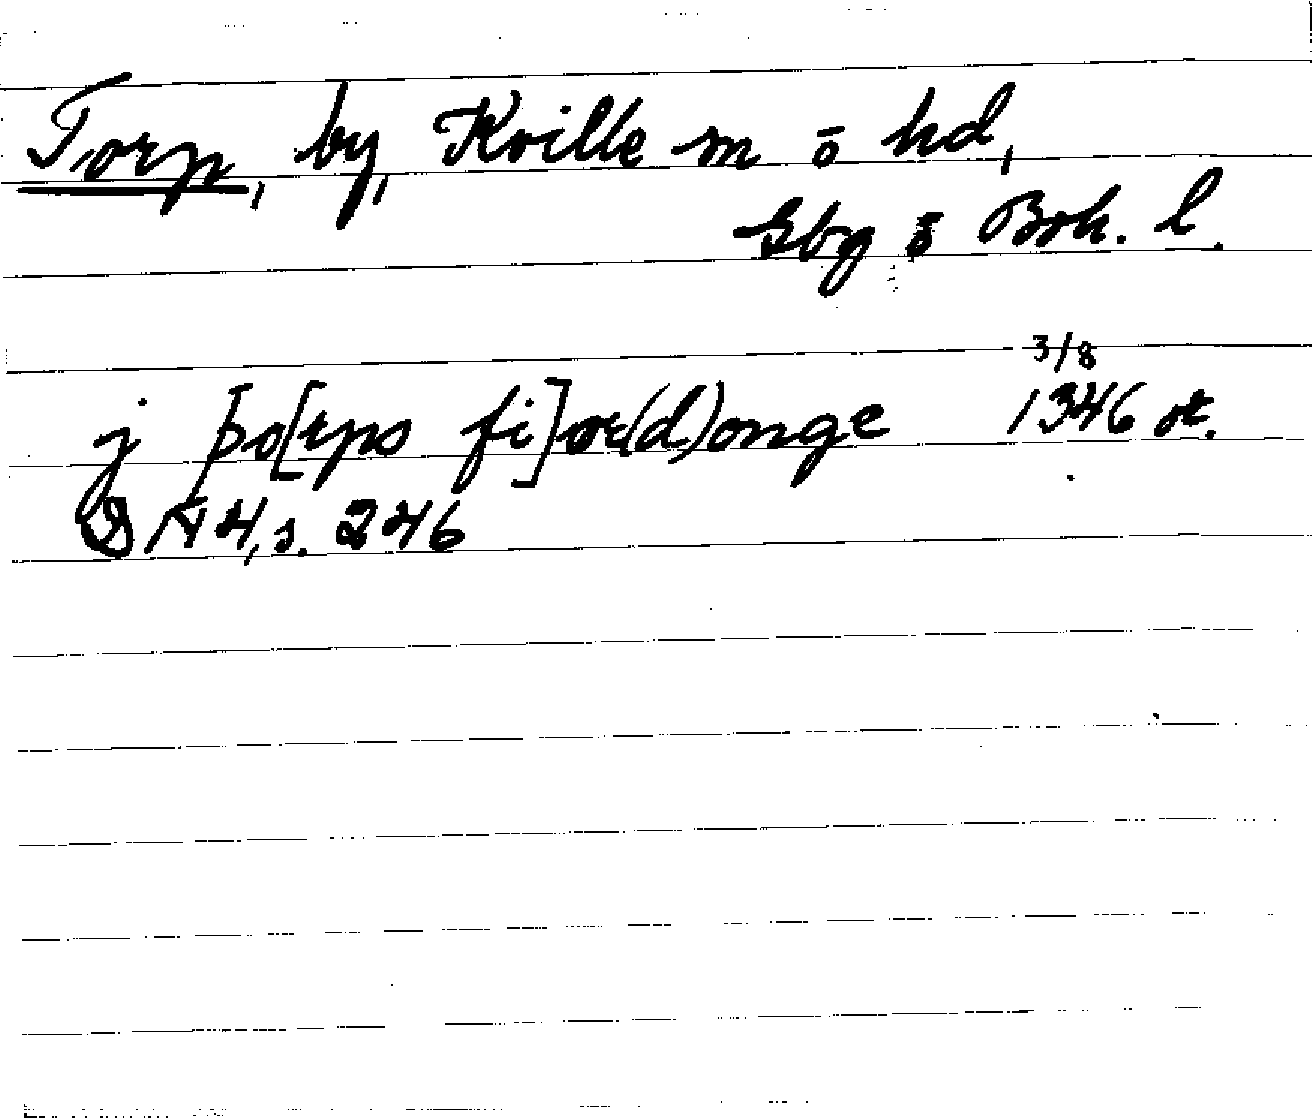 Torp, by, Kville sn o hd,
Gbg o Boh. l.
3/8
j þo[rps fi]or(d)onge 1346 or.
DN 4, s. 246